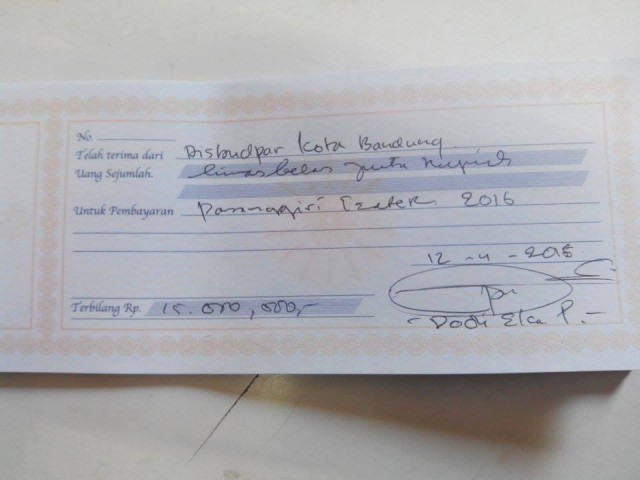 No.
Telah terima dari Disbudpar Kota Bandung
Uang Sejumlah. limabelas juta rupiah
Untuk Pembayaran Pasanggiri 2016
12 - 4 - 2016
Terbilang Rp. 15.000,000,-
- Dodi Eka P. -